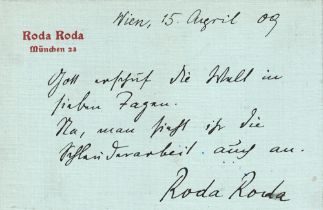 Wien, 15. April 09
Roda Roda
München 23
Gott erschuf die Welt in
sieben Tagen.
Na, man sieht ihr die
Schleuderarbeit auch an.
Roda Roda